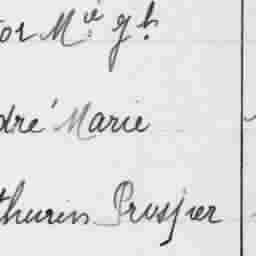 or Mie gh
dré Marie
thurin Prosper